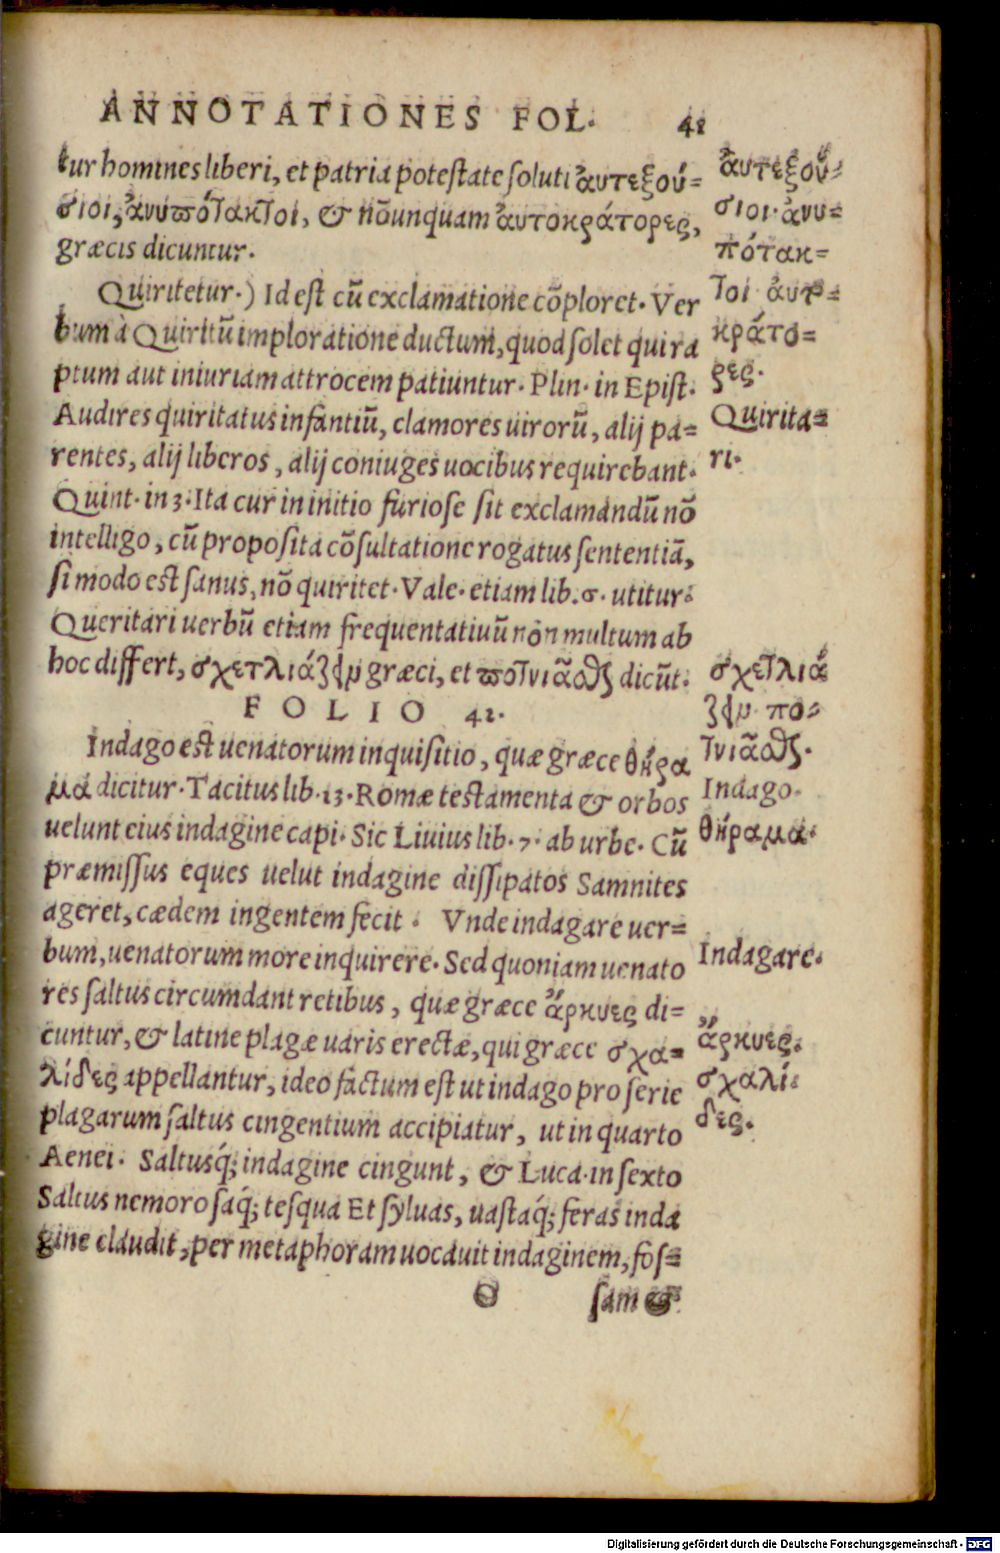 ANNOTATIONES FOL. 41
tur homines liberi, et patria potestate soluti αὐτεξού=
σιοι, ἀνυπότακτοι, & nōunquam αὐτοκράτορες,
græcis dicuntur.
Quiritetur.) Id est cū exclamatione cōploret. Ver
bum à Quiritū imploratione ductum, quod solet qui ra
ptum aut iniuriam attrocem patiuntur. Plin. in Epist.
Audires quiritatus infantiū, clamores uirorū, alij pa=
rentes, alij liberos, alij coniuges uocibus requirebant.
Quint. in 3. Ita cur in initio furiose sit exclamandū nō
intelligo, cū proposita cōsultatione rogatus sententiā,
si modo est sanus, nō quiritet. Vale. etiam lib. 6. utitur.
Queritari uerbū etiam frequentatiuū non multum ab
hoc differt, σχετλιάζειν græci, et ποτνιᾶσθαι dicūt.
FOLIO 42.
Indago est uenatorum inquisitio, quæ græce θήρα
μα dicitur. Tacitus lib. 13. Romæ testamenta & orbos
uelunt eius indagine capi. Sic Liuius lib. 7. ab urbe. Cū
præmissus eques uelut indagine dissipatos Samnites
ageret, cædem ingentem fecit. Vnde indagare uer=
bum, uenatorum more inquirere. Sed quoniam uenato
res saltus circumdant retibus, quæ græce ἄρκυες di=
cuntur, & latine plagæ uaris erectæ, qui græce σχα=
λίδες appellantur, ideo factum est ut indago pro serie
plagarum saltus cingentium accipiatur, ut in quarto
Aenei. Saltusq́; indagine cingunt, & Luca. in sexto
Saltus nemorosaq́; tesqua Et syluas, uastaq́; feras inda
gine claudit, per metaphoram uocauit indaginem, fos=
O sam &
αὐτεξού=
σιοι. ἀνυ=
πότακ=
τοι αὐτο=
κράτο=
ρες.
Quirita=
ri.
σχετλιά
ζειν πο=
τνιᾶσθαι.
Indago.
θήραμα.
Indagare.
ἄρκυες.
σχαλί=
δες.
Digitalisierung gefördert durch die Deutsche Forschungsgemeinschaft - DFG